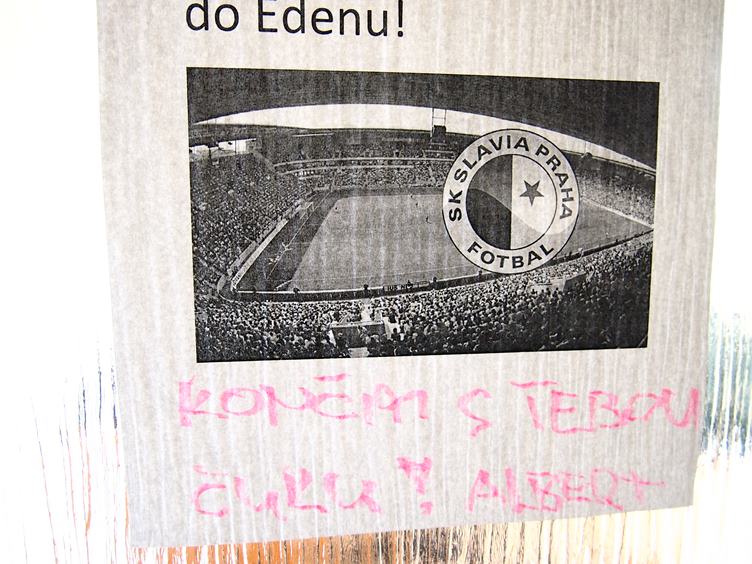 do Edenu!
SK SLAVIA PRAHA
FOTBAL
KONČÍM S TEBOU
ČUŇU! ALBERT